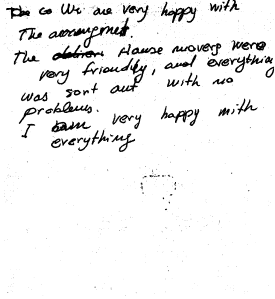 We are very happy with
The arrangment.
The House movers were
very friendly, and everything
was sort out with no
problems.
I very happy with
everything